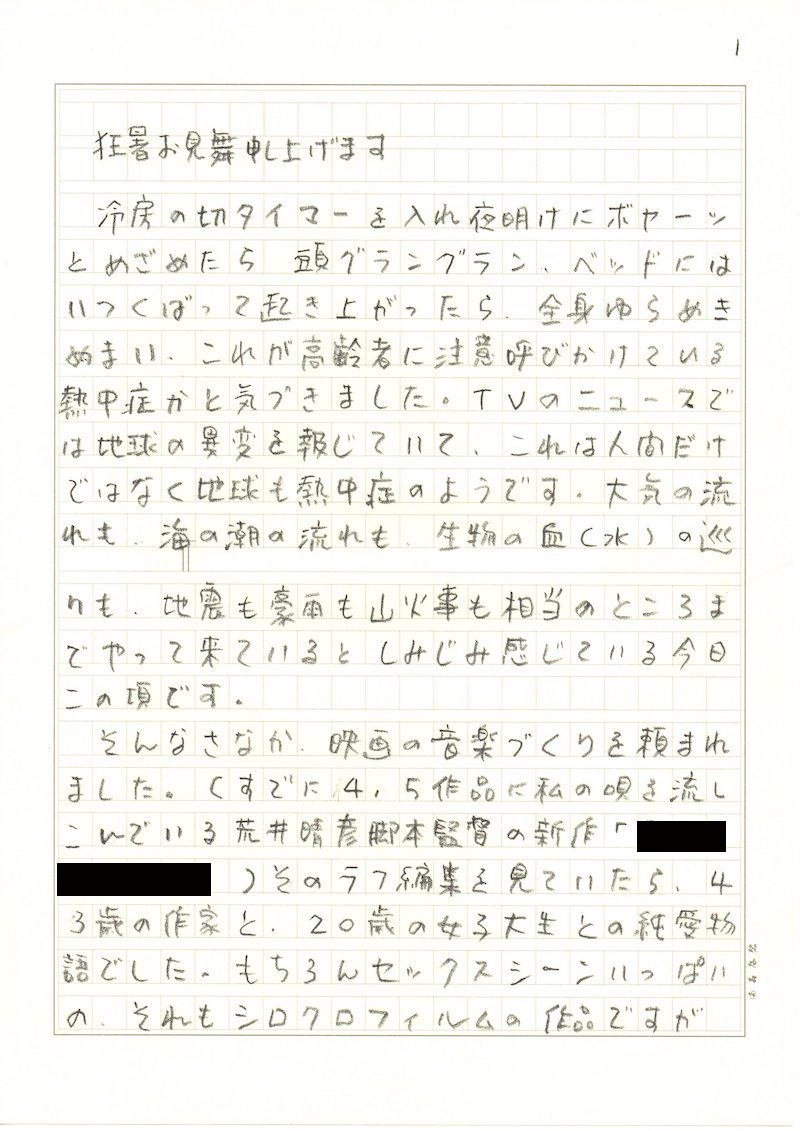 1
狂暑お見舞申し上げます
冷房の切タイマーを入れ夜明けにボヤーッ
とめざめたら 頭グラングラン、ベッドには
いつくばって起き上がったら、全身ゆらめき
めまい、これが高齢者に注意呼びかけている
熱中症かと気づきました。TVのニュースで
は地球の異変を報じていて、これは人間だけ
ではなく地球も熱中症のようです。大気の流
れも、海の潮の流れも、生物の血(水)の巡
りも、地震も豪雨も山火事も相当のところま
でやって来ているとしみじみ感じている今日
この頃です。
そんなさなか、映画の音楽づくりを頼まれ
ました。(すでに4,5作品に私の唄を流し
こんでいる荒井晴彦脚本監督の新作「
)そのラフ編集を見ていたら、4
3歳の作家と、20歳の女子大生との純愛物
語でした。もちろんセックスシーンいっぱい
の、それもシロクロフィルムの作品ですが